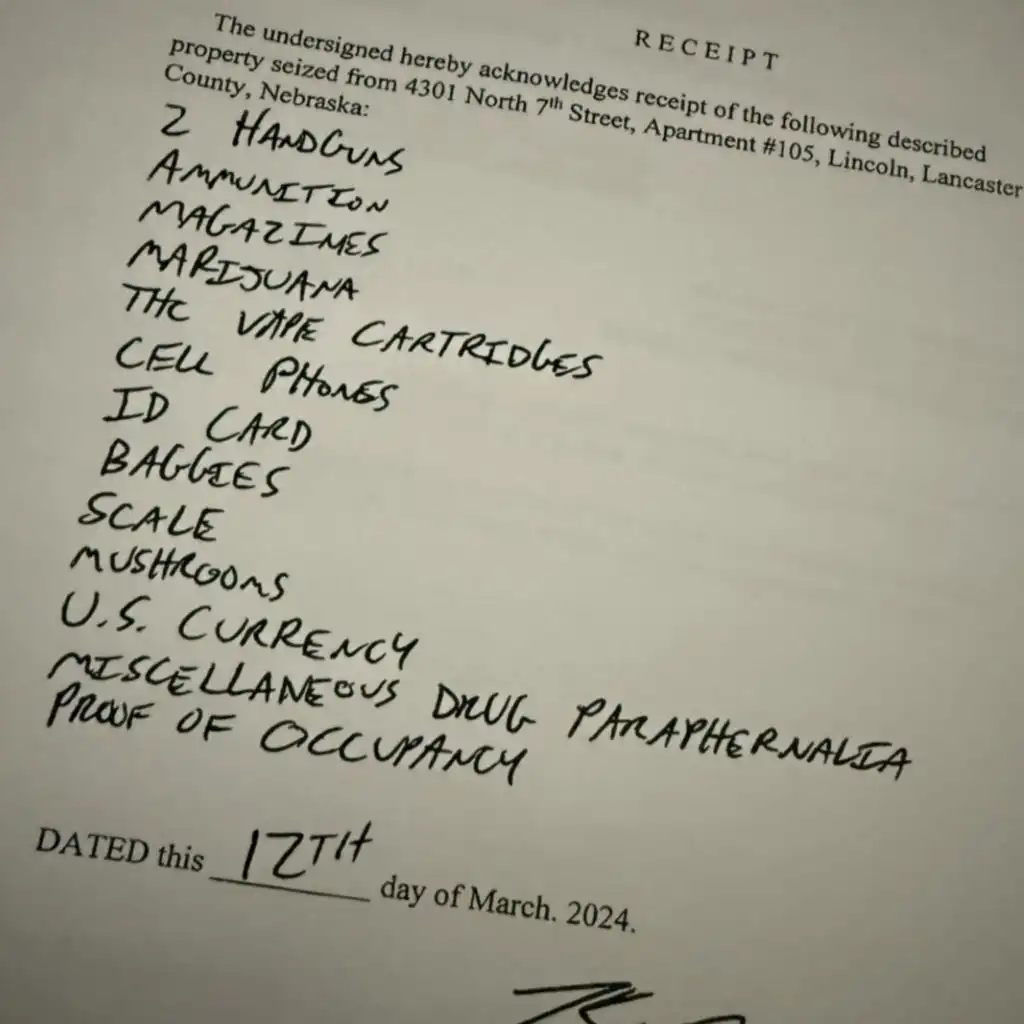 RECEIPT
The undersigned hereby acknowledges receipt of the following described
property seized from 4301 North 7th Street, Apartment #105, Lincoln, Lancaster
County, Nebraska:
2 HANDGUNS
AMMUNITION
MAGAZINES
MARIJUANA
THC VAPE CARTRIDGES
CELL PHONES
ID CARD
BAGGIES
SCALE
MUSHROOMS
U.S. CURRENCY
MISCELLANEOUS DRUG PARAPHERNALIA
PROOF OF OCCUPANCY
DATED this 12TH day of March. 2024.